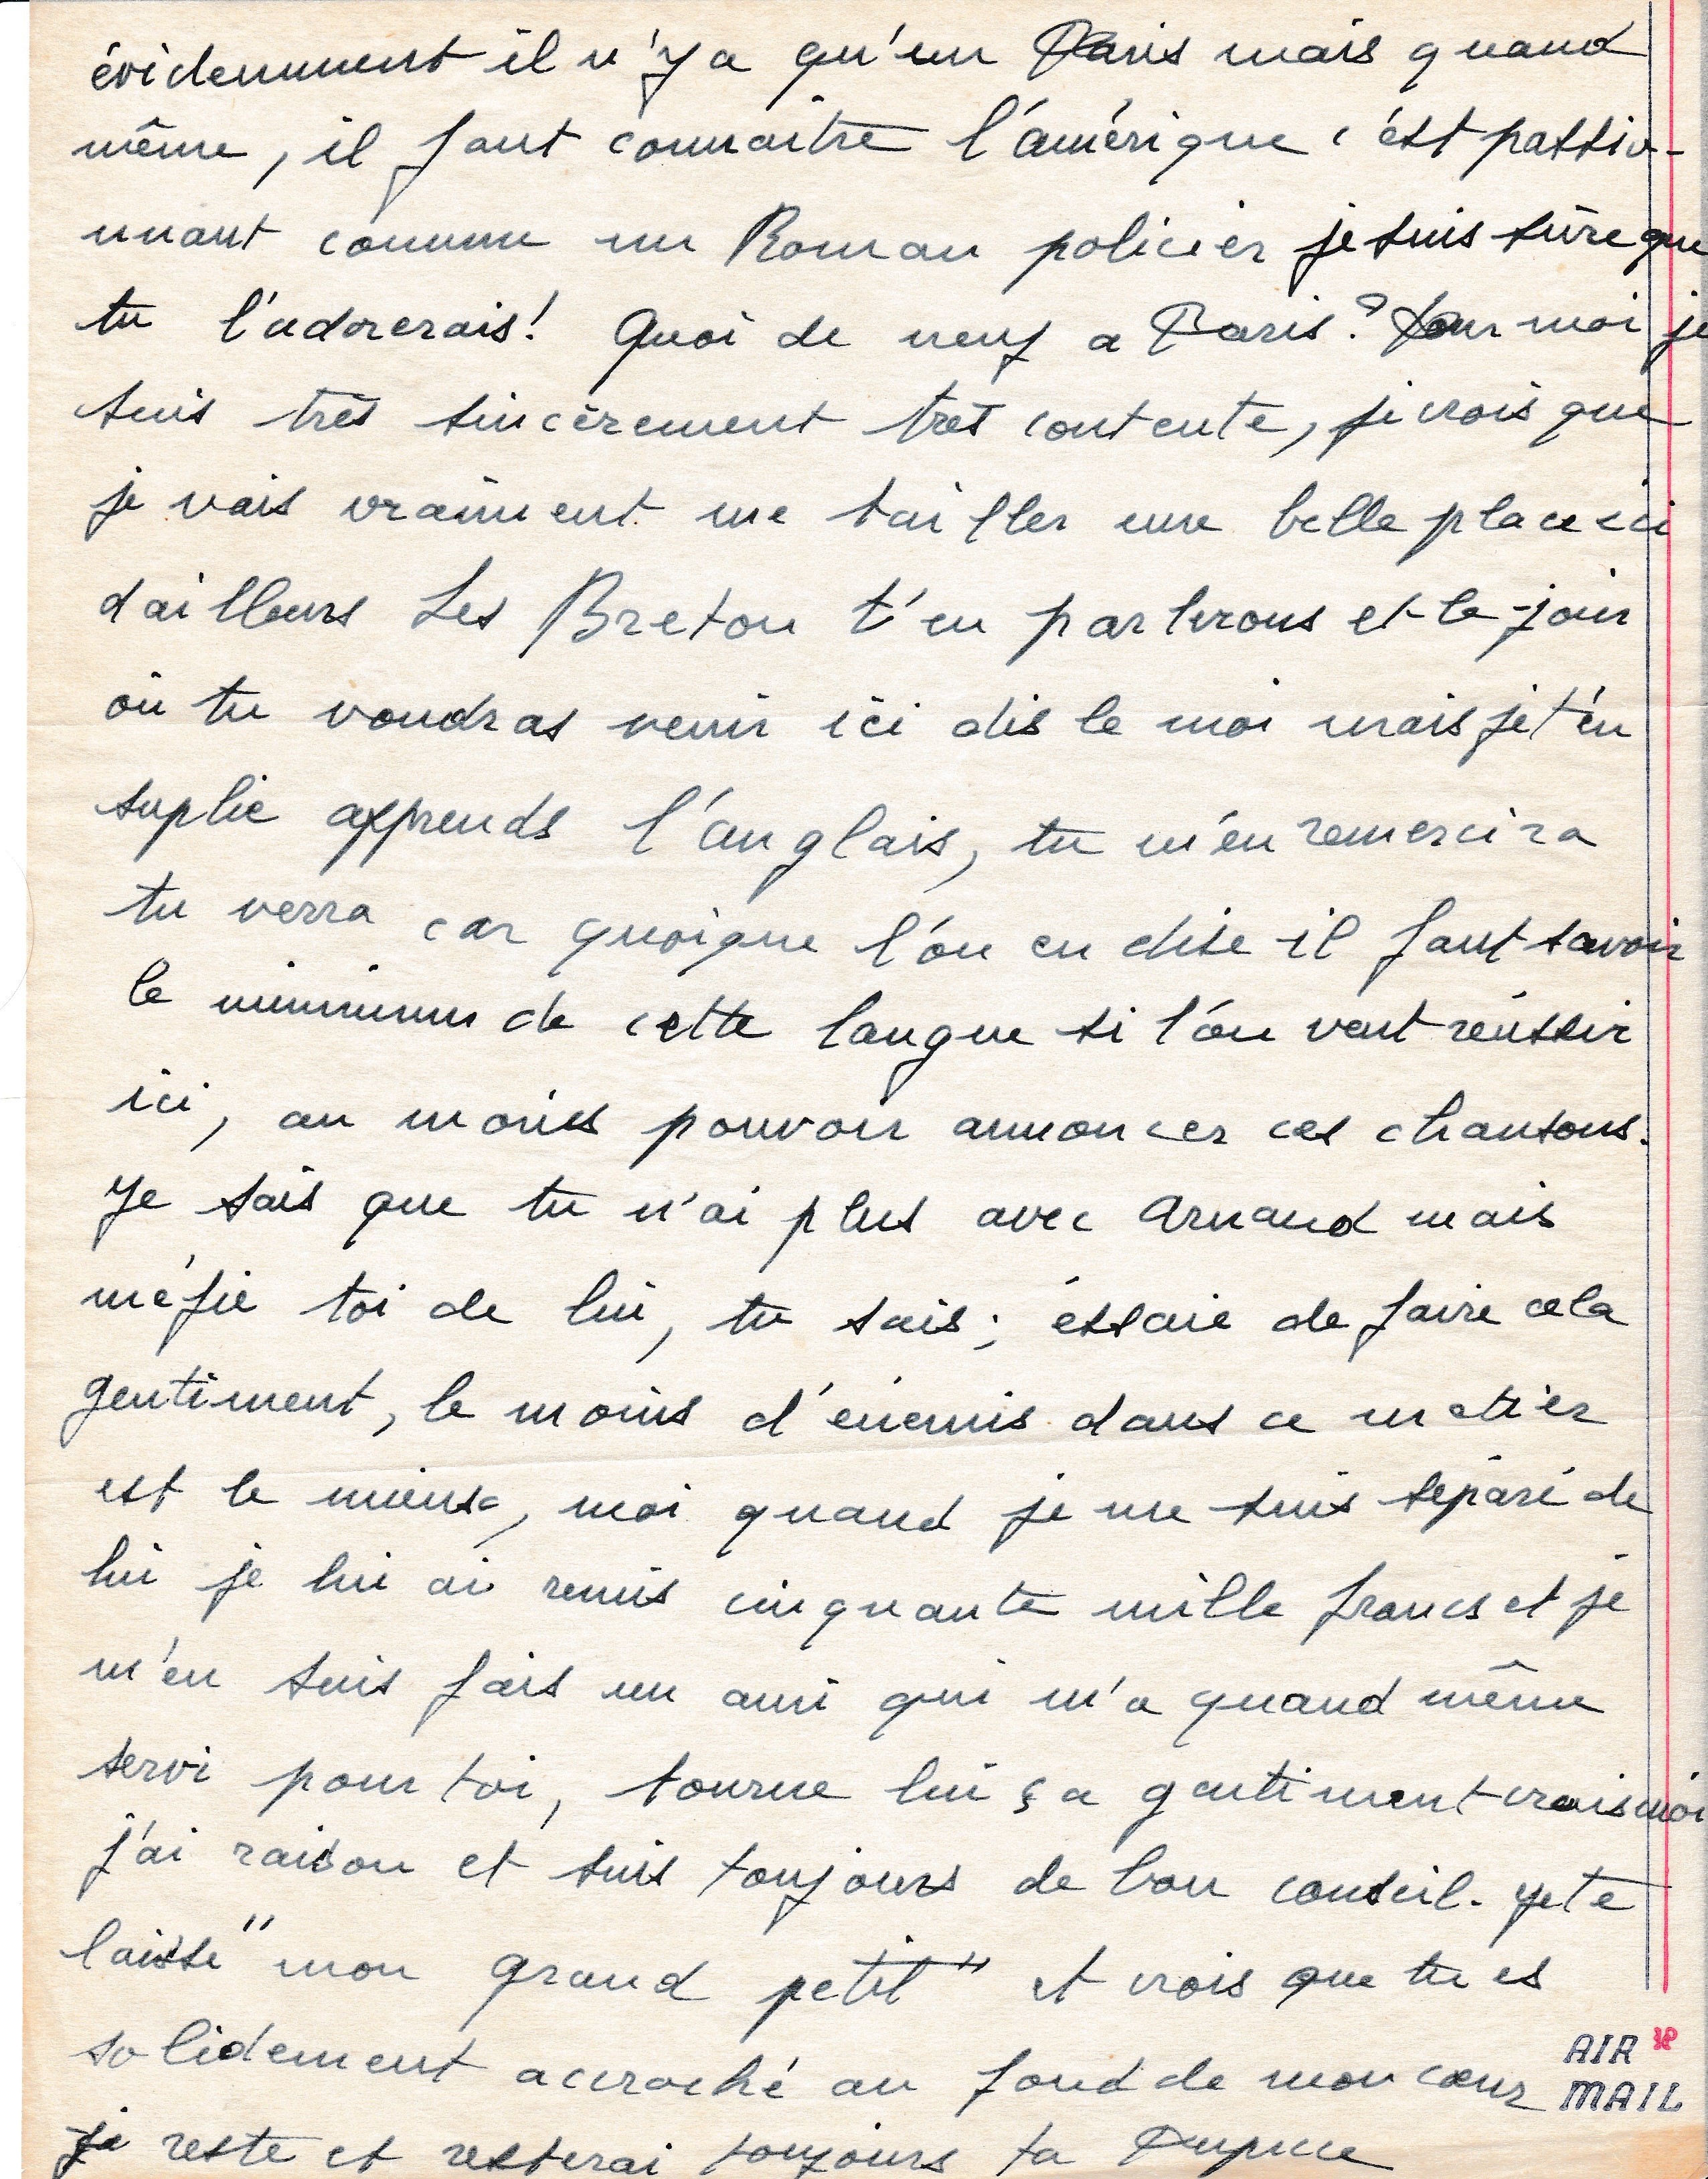 évidemment il n'y a qu'un Paris mais quand
même, il faut connaitre l'amérique c'est passio-
nnant comme un Roman policier je suis sûre que
tu l'adorerais! Quoi de neuf a Paris? Pour moi je
suis très sincèrement très contente, je crois que
je vais vraiment me tailler une belle place ici
d'ailleurs Les Breton t'en parlerons et le jour
où tu voudras venir ici dis le moi mais je t'en
suplie apprends l'anglais, tu m'en remercira
tu verra car quoique l'on en dise il faut savoir
le minimum de cette langue si l'on veut réussir
ici, au moins pouvoir annoncer ces chansons.
Je sais que tu n'ai plus avec Arnaud mais
méfie toi de lui, tu sais; éssaie de faire cela
gentiment, le moins d'énemis dans ce metier
est le mieux, moi quand je me suis séparé de
lui je lui ai remis cinquante mille francs et je
m'en suis fais un ami qui m'a quand même
servi pour toi, tourne lui ça gentiment crois moi
j'ai raison et suis toujours de bon conseil. je te
laisse "mon grand petit" et crois que tu es
solidement accroché au fond de mon cœur
je reste et resterai toujours ta
AIR
MAIL